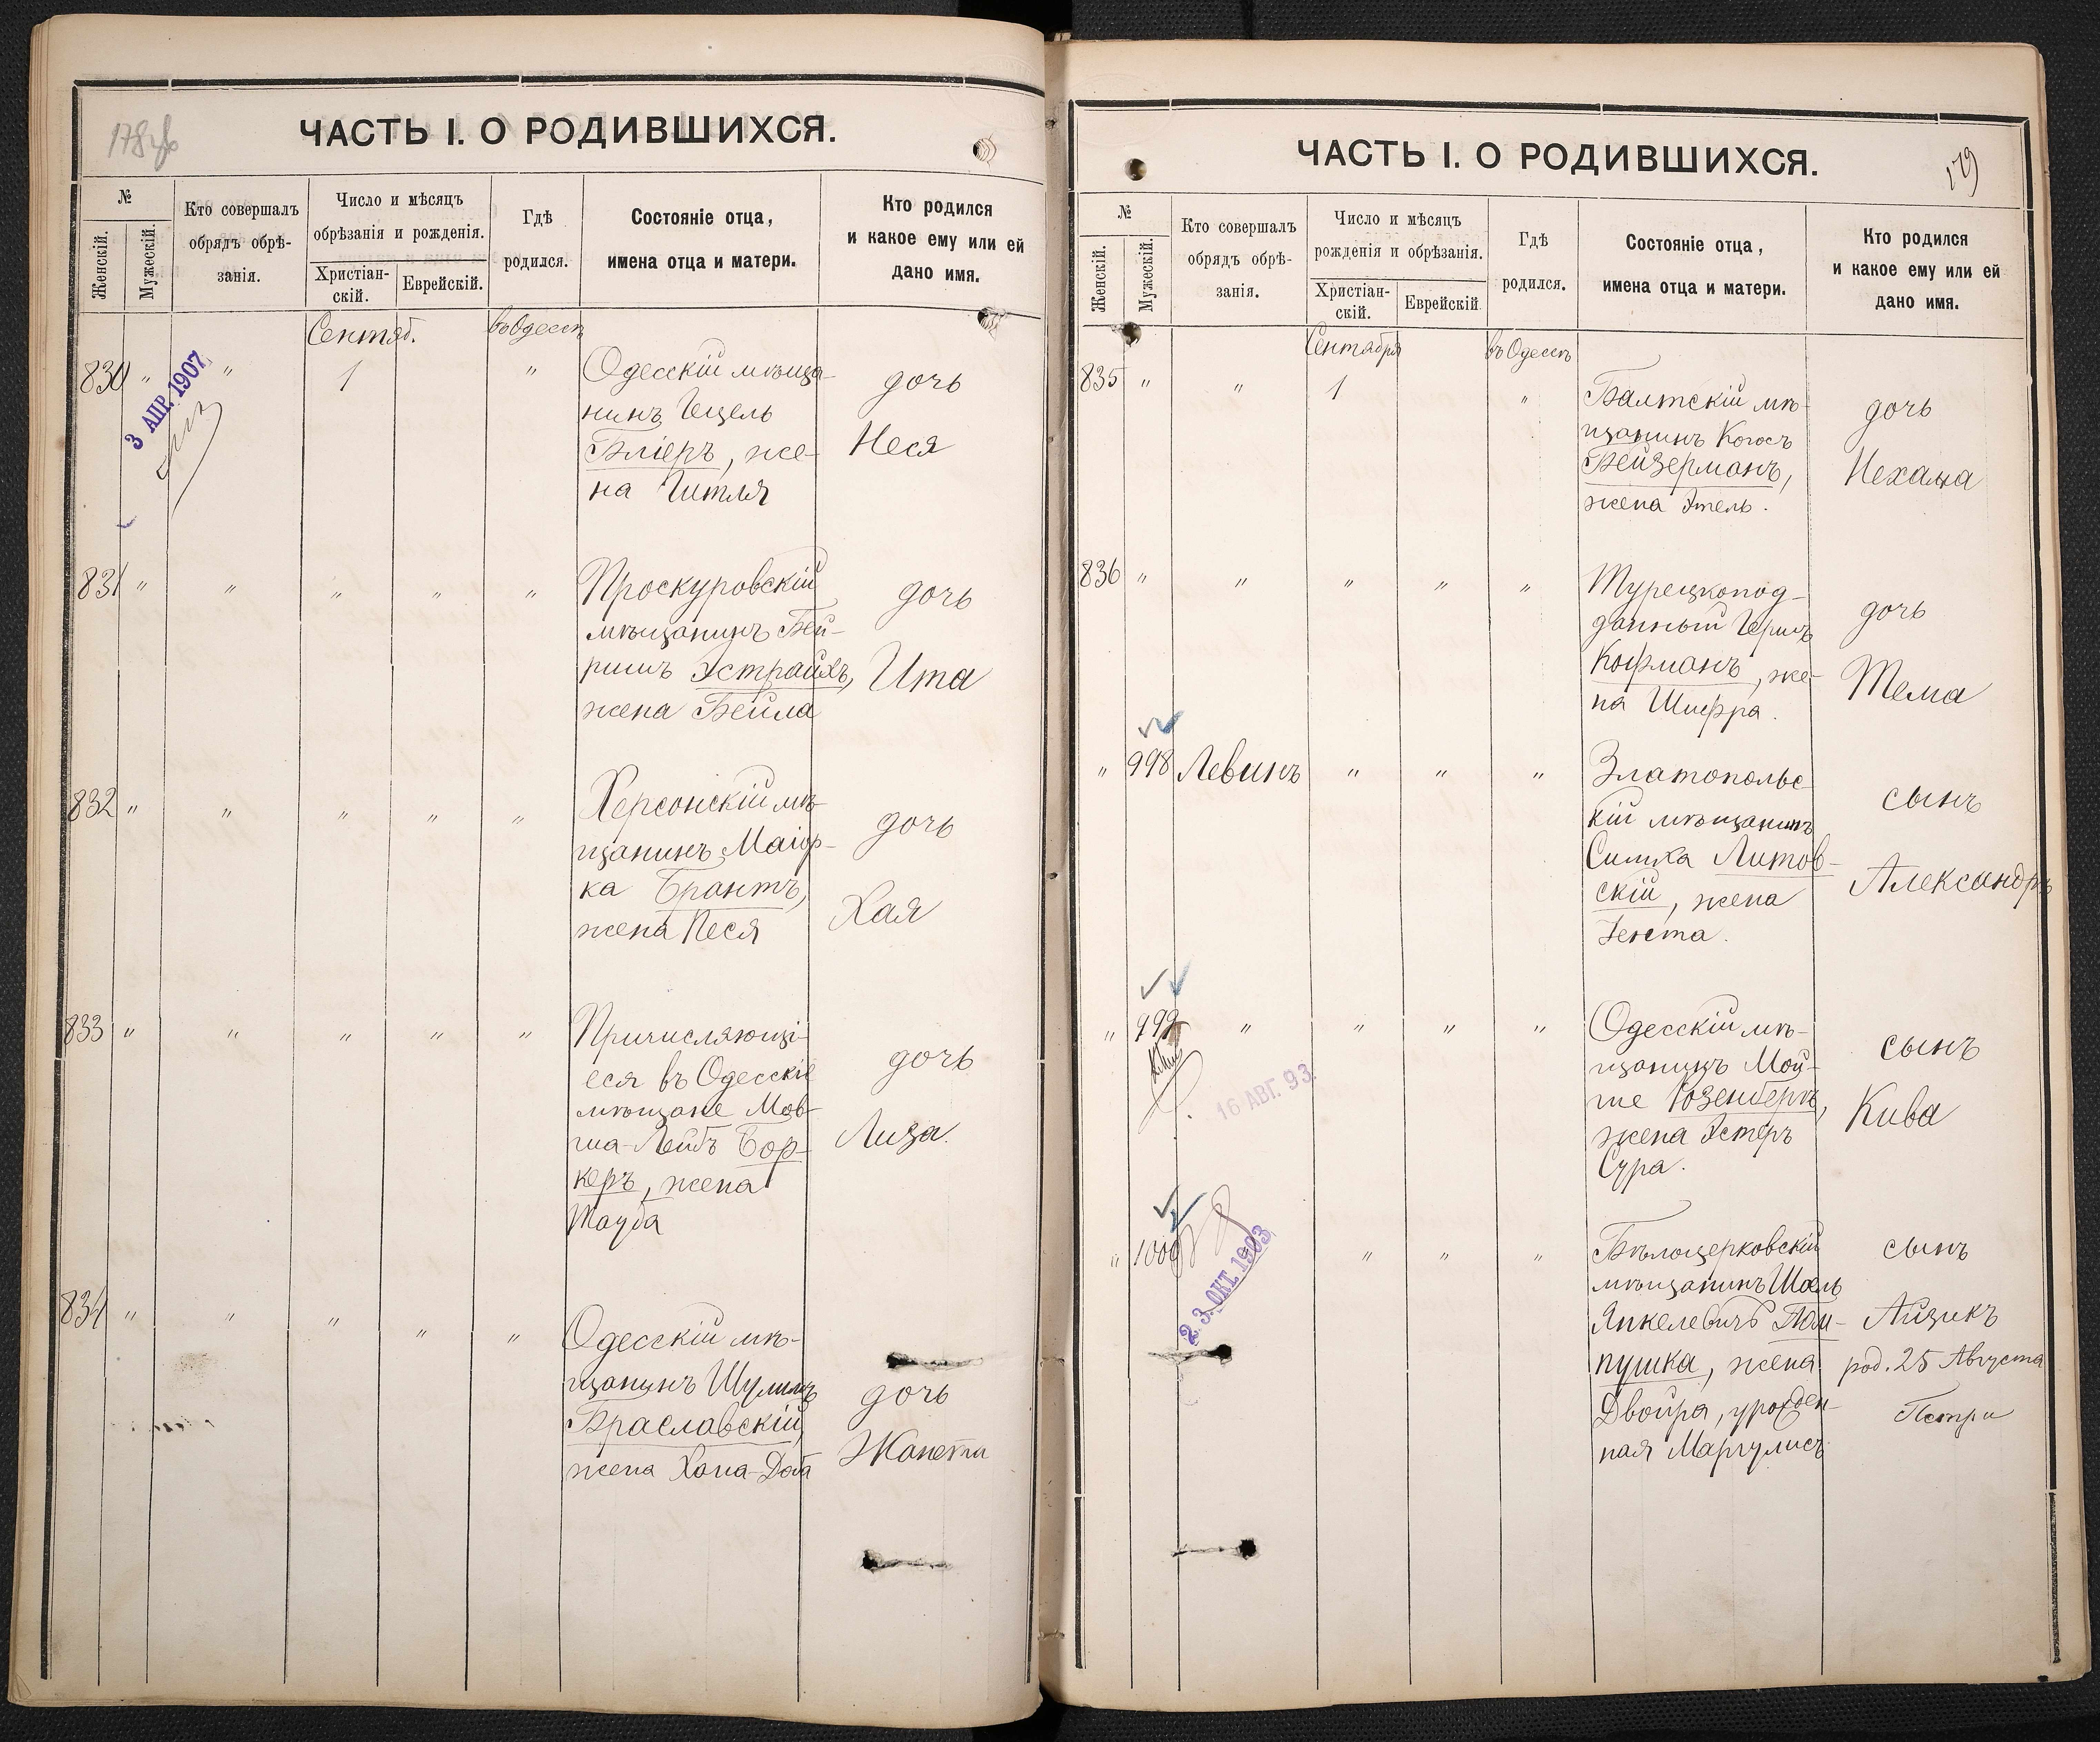 178об
ЧАСТЬ I. О РОДИВШИХСЯ.
№
Женскій.
Мужескій.
Кто совершалъ
обрядъ обрѣ-
занія.
Число и мѣсяцъ
обрѣзанія и рожденія.
Христіан-
скій.
Еврейскій.
Гдѣ
родился.
Состояніе отца,
имена отца и матери.
Кто родился
и какое ему или ей
дано имя.
Сентяб. въ Одессѣ
830 " " 1 "
3 АПР. 1907
Одесскій мѣща-
нинъ Гецель
Бліеръ, же-
на Гитля
дочь
Неся
831 " " " " "
Проскуровскій
мѣщанинъ Бей-
ришъ Эстрайхъ,
жена Бейла
дочь
Ита
832 " " " " "
Херсонскій мѣ-
щанинъ Маіор-
ка Брантъ,
жена Песя
дочь
Хая
833 " " " " "
Причисляющі-
еся въ Одесскіе
мѣщане Мов-
ша-Лейбъ Бор-
керъ, жена
Тауба
дочь
Лиза.
834 " " " " "
Одесскій мѣ-
щанинъ Шулимъ
Браславскій,
жена Хана-Доба
дочь
Жанета
179
ЧАСТЬ I. О РОДИВШИХСЯ.
№
Женскій.
Мужескій.
Кто совершалъ
обрядъ обрѣ-
занія.
Число и мѣсяцъ
рожденія и обрѣзанія.
Христіан-
скій.
Еврейскій.
Гдѣ
родился.
Состояніе отца,
имена отца и матери.
Кто родился
и какое ему или ей
дано имя.
Сентября въ Одессѣ
835 " " 1 "
Балтскій мѣ-
щанинъ Когосъ
Бейзерманъ,
жена Этель.
дочь
Нехама
836 " " " " "
Турецкопод-
данный Гершъ
Кофманъ, же-
на Шифра.
дочь
Тема
" 998 Левинъ " " "
Златопольс-
кій мѣщанинъ
Симха Литов-
скій, жена
Генета.
сынъ
Александръ
" 999 " " " "
16 АВГ. 93.
Одесскій мѣ-
щанинъ Мой-
ше Розенбергъ,
жена Эстеръ
Сура.
сынъ
Кива
" 1000 " " "
2.3. ОКТ. 1903
Бѣлоцерковскій
мѣщанинъ Шаель
Янкелевичъ Пам-
пушка, жена
Двойра, урожден-
ная Маргулисъ
сынъ
Айзикъ
род. 25 Августа